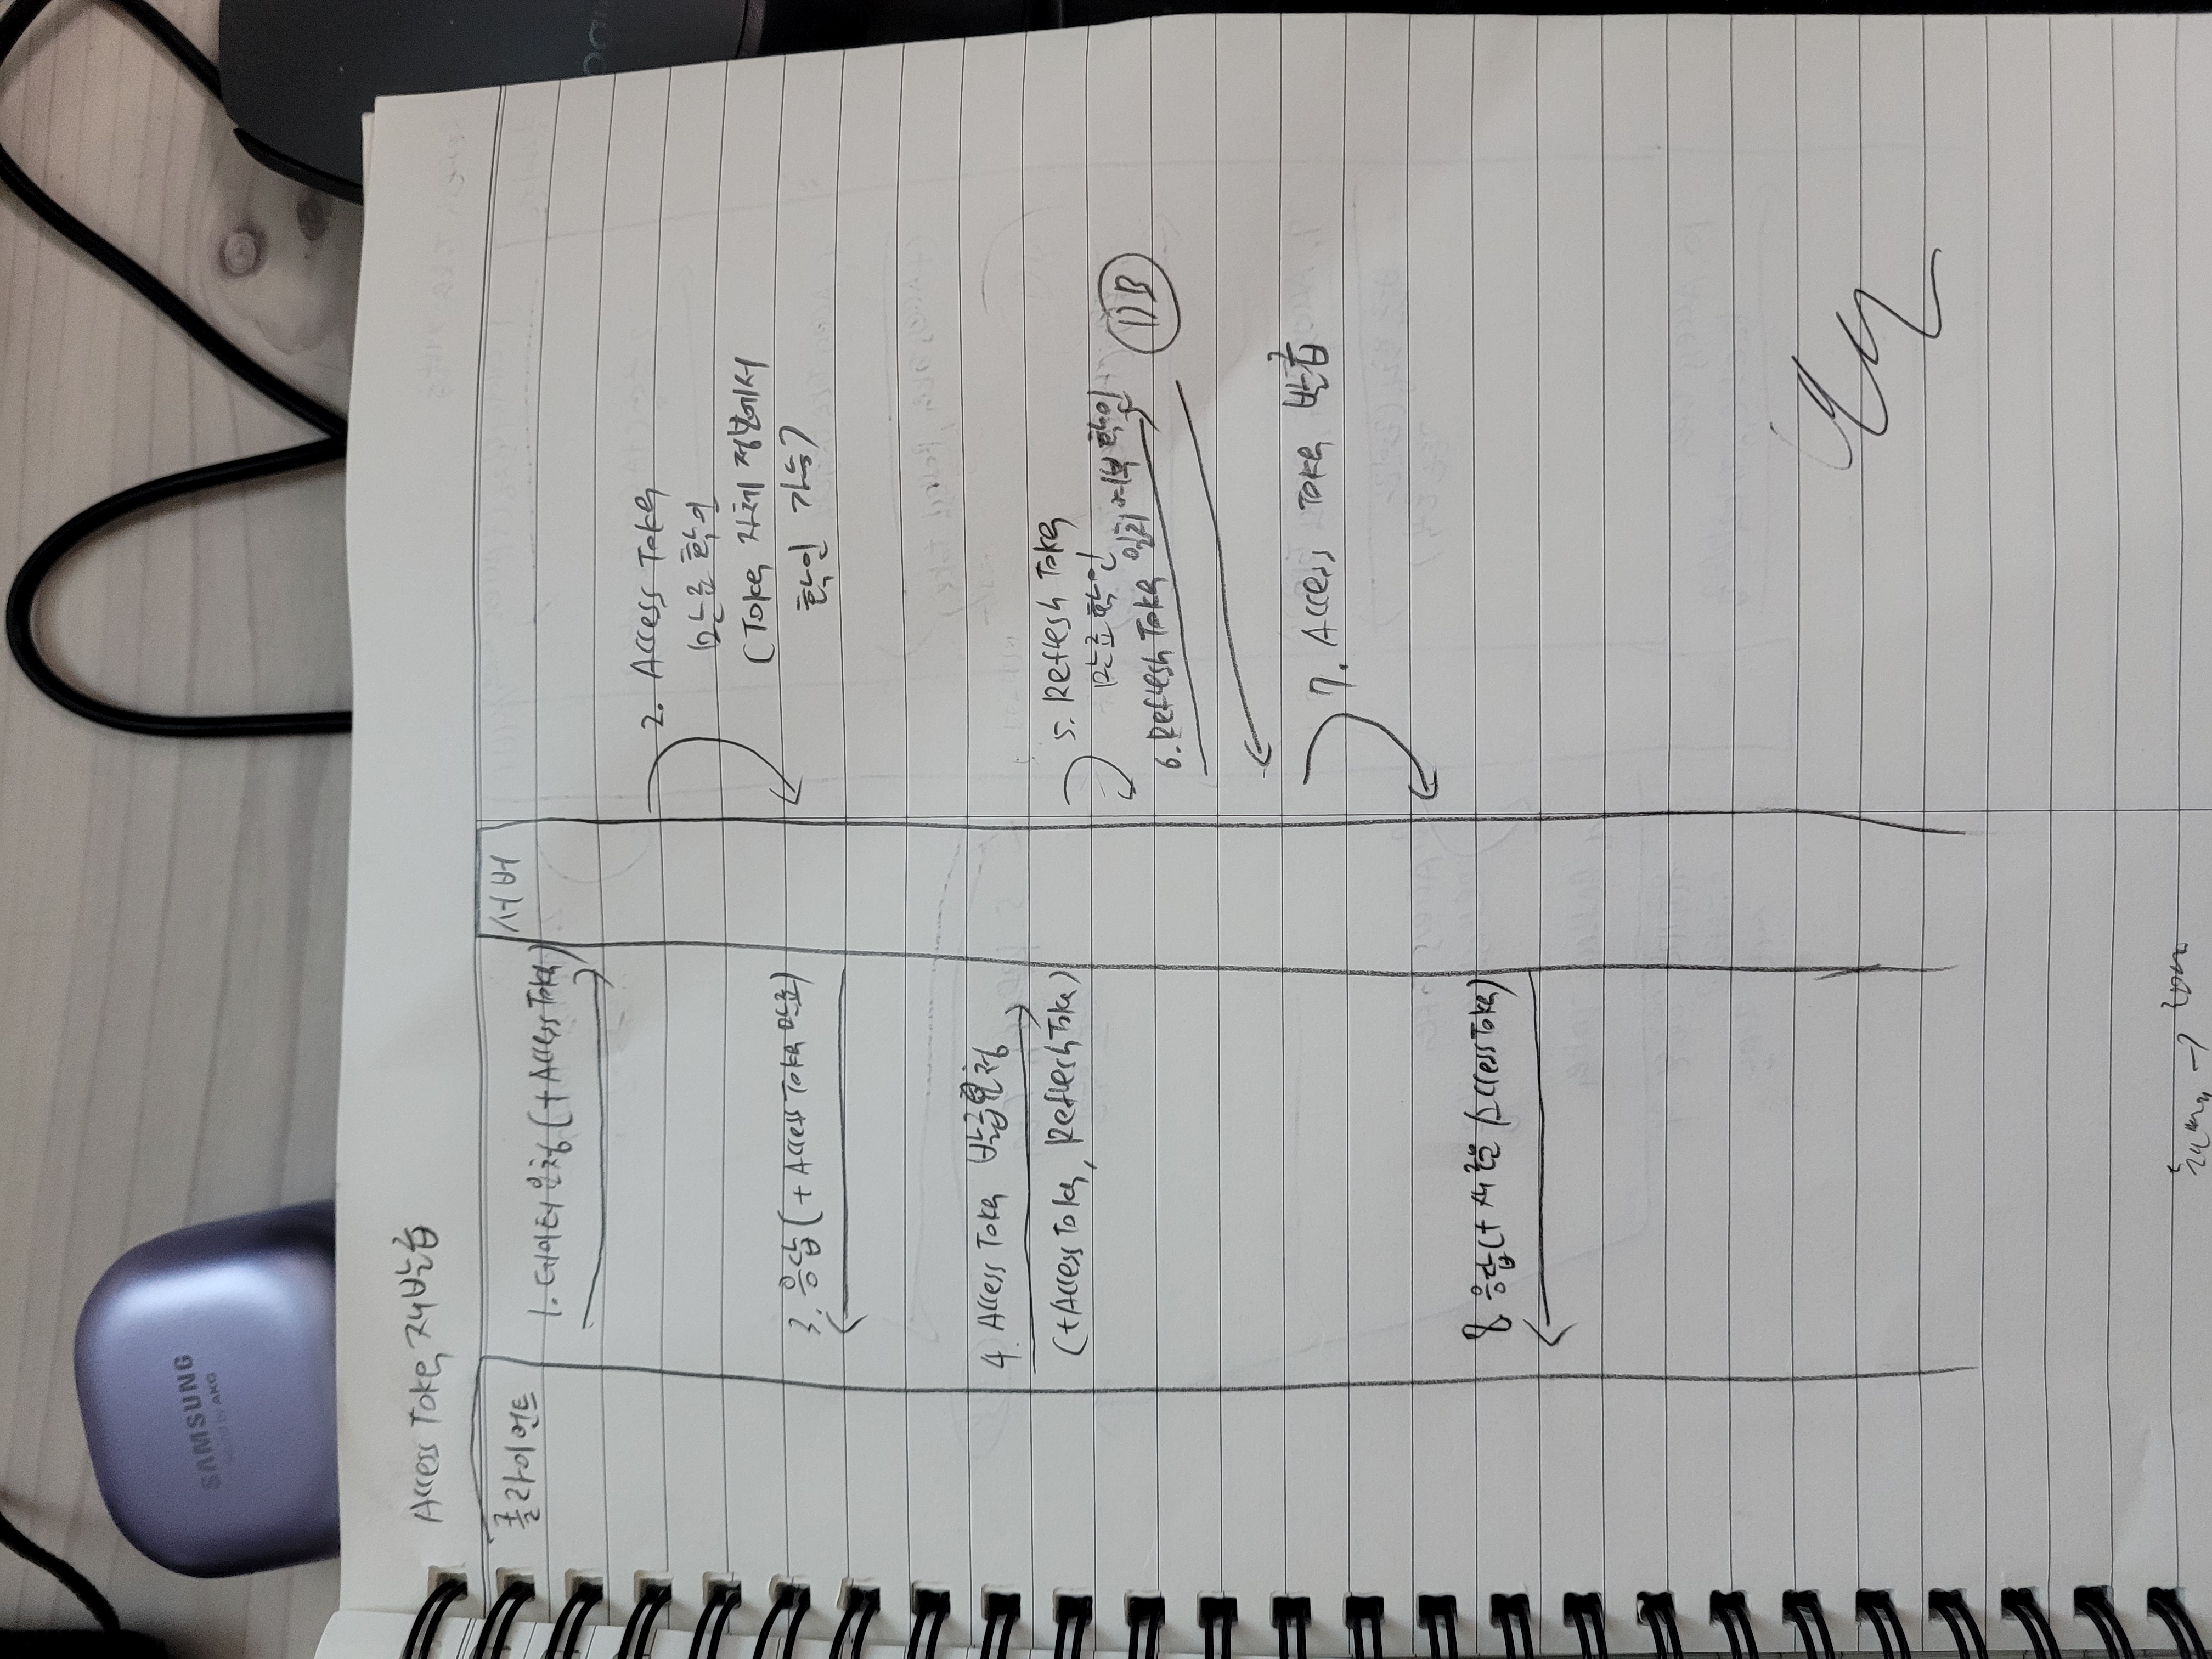 SAMSUNG
Sound by AKG
Access Token 재발급
클라이언트
서버
1. 데이터 요청 (+ Access Token)
2. Access Token
만료 확인
(Token 자체 정보에서
확인 가능)
3. 응답 (+ Access Token 만료)
4. Access Token 발급 요청
(+Access Token, Refresh Token)
5. Refresh Token
만료 확인
6. Refresh Token 일치 여부 확인
DB
7. Access Token 발급
8. 응답 (+ 새로운 Access Token)